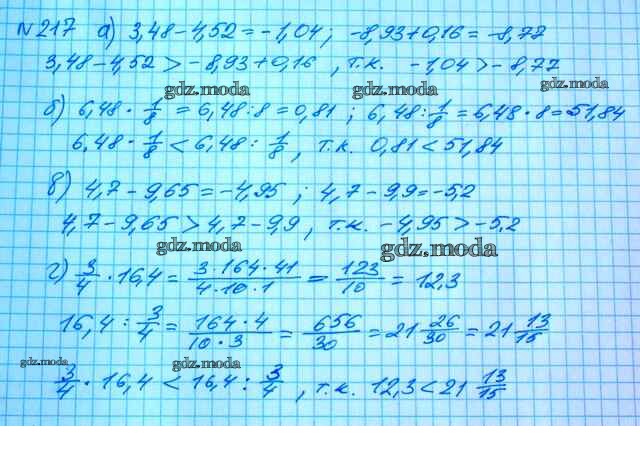 №217 а) 3,48-4,52=-1,04; -8,93+0,16=-8,77
3,48-4,52>-8,93+0,16, т.к. -1,04>-8,77
gdz.moda gdz.moda gdz.moda
б) 6,48·1/8=6,48:8=0,81; 6,48:1/8=6,48·8=51,84
6,48·1/8<6,48:1/8, т.к. 0,81<51,84
в) 4,7-9,65=-4,95; 4,7-9,9=-5,2
4,7-9,65>4,7-9,9, т.к. -4,95>-5,2
gdz.moda gdz.moda
г) 3/4·16,4=3·164·41/4·10·1=123/10=12,3
16,4:3/4=164·4/10·3=656/30=21 26/30=21 13/15
gdz.moda gdz.moda
3/4·16,4<16,4:3/4, т.к. 12,3<21 13/15